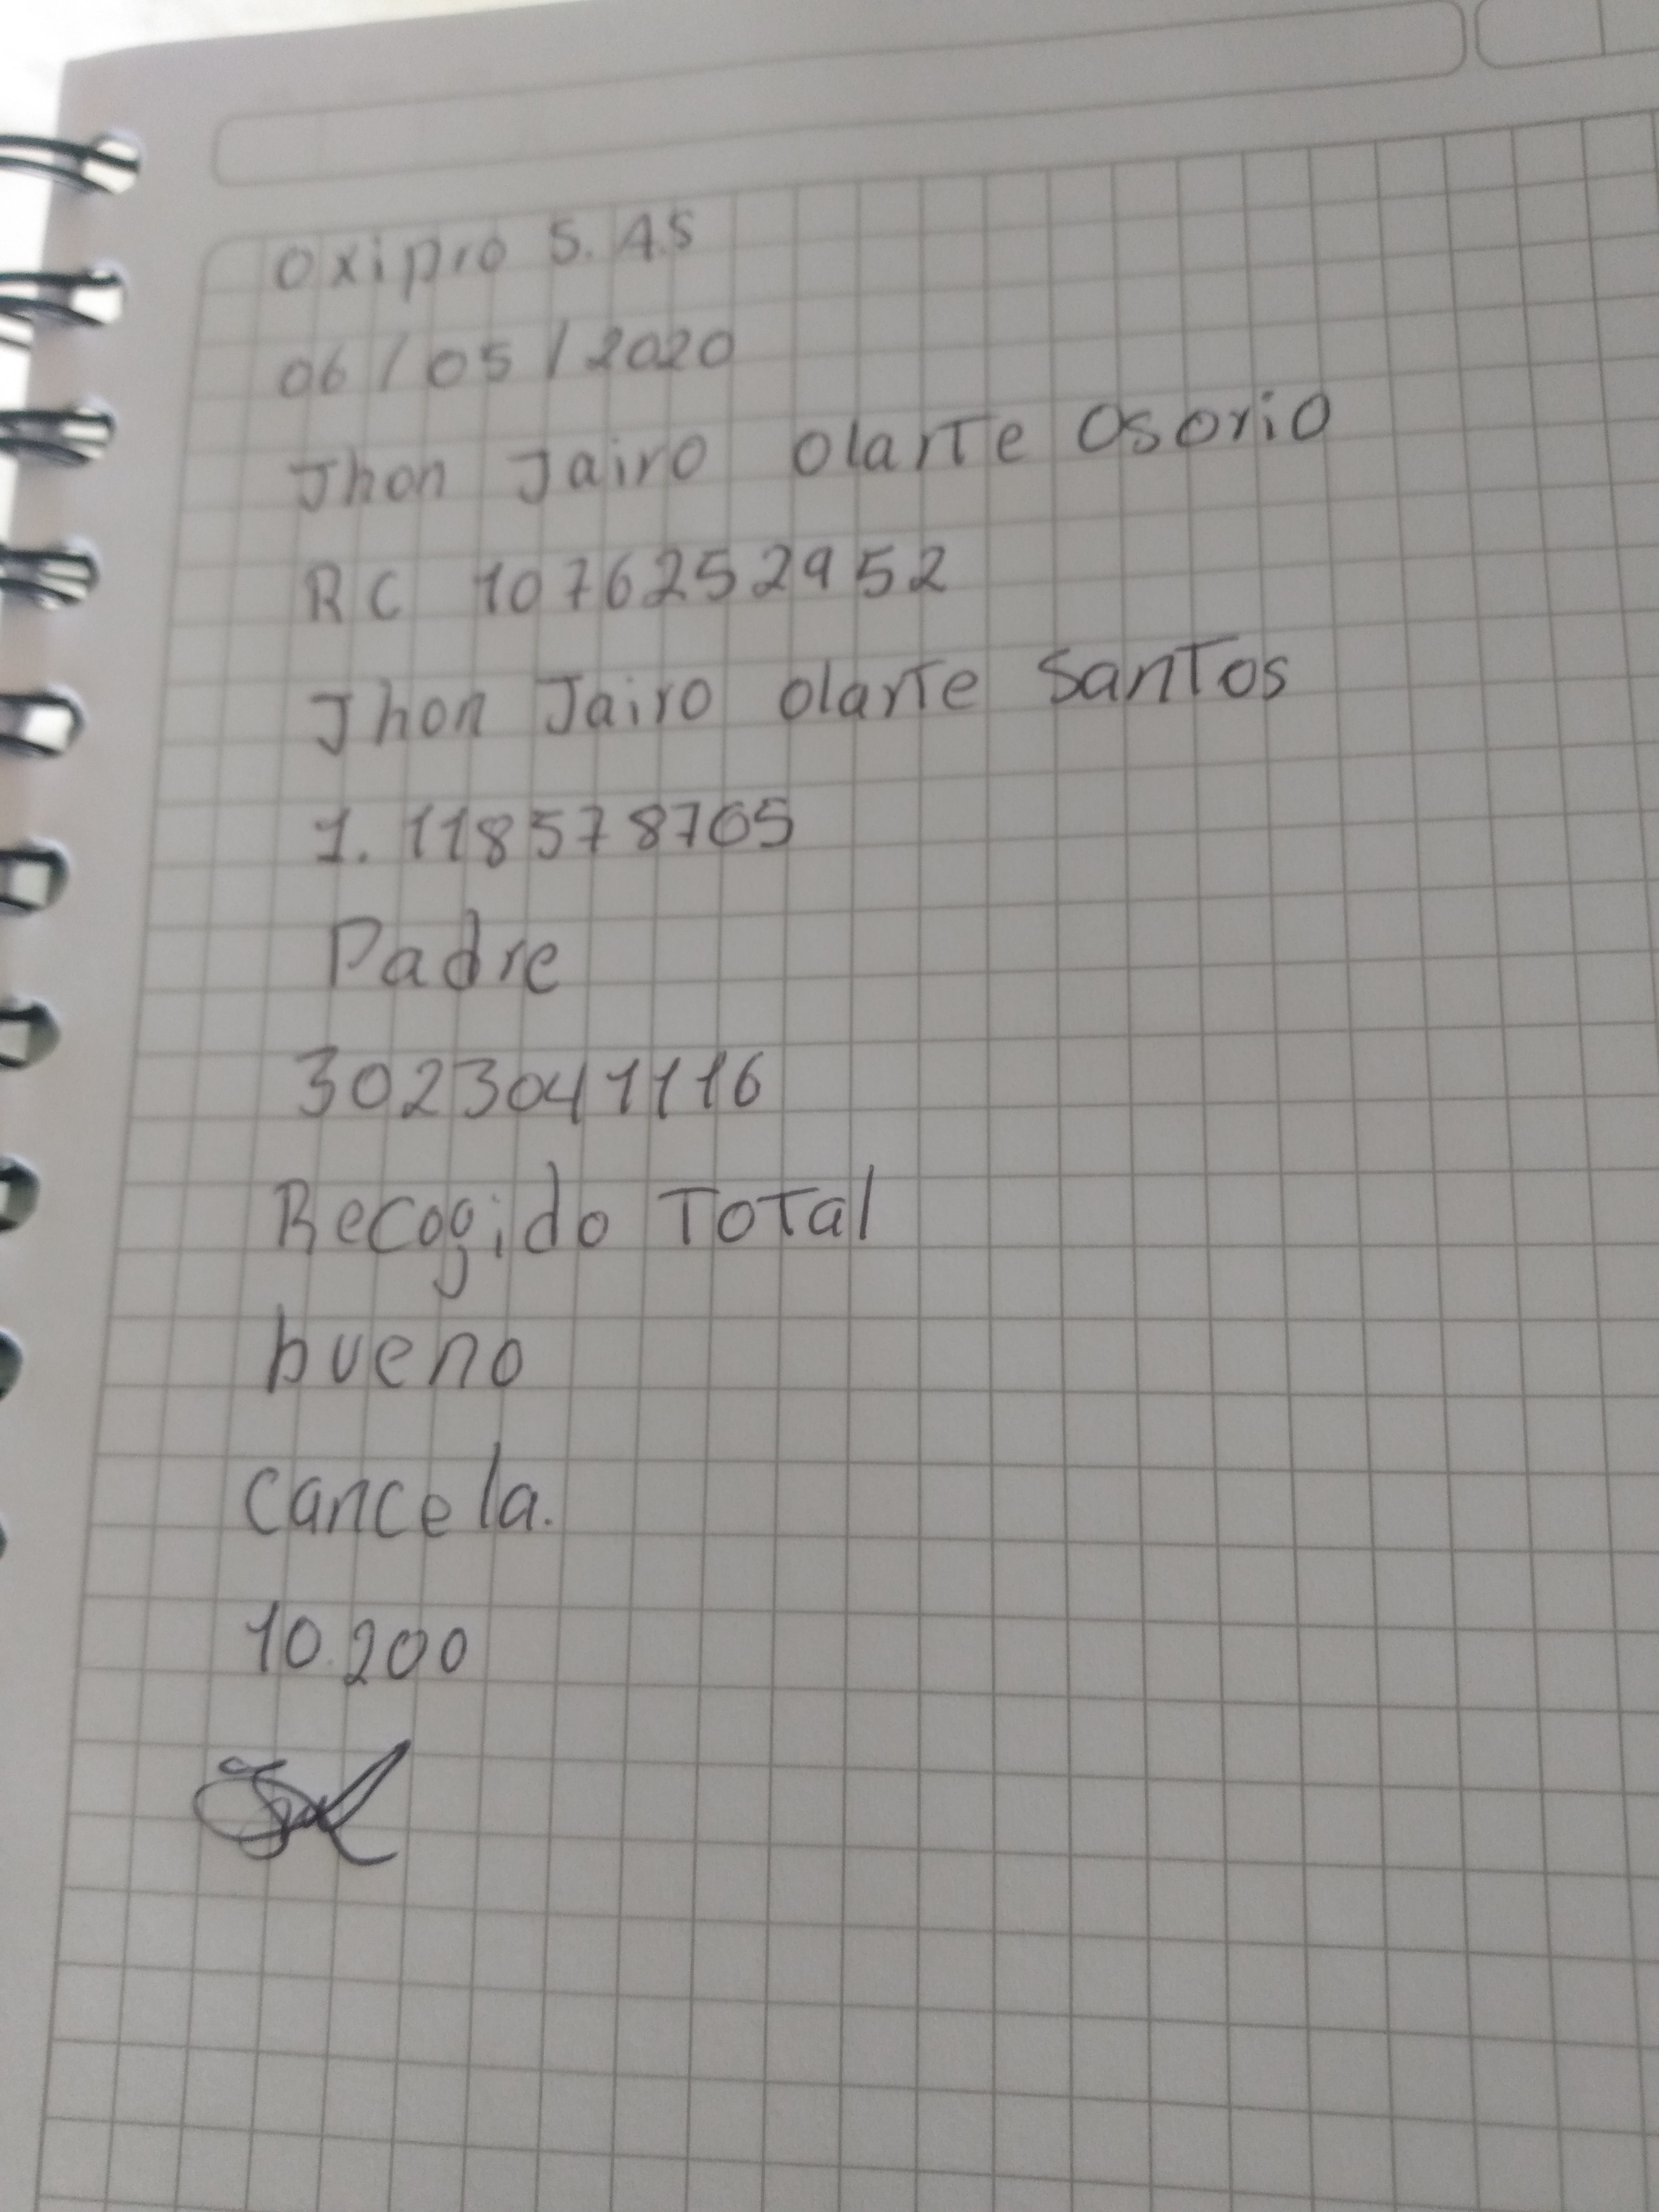 Oxipro S.A.S
06/05/2020
Jhon Jairo Olarte Osorio
RC 1076252952
Jhon Jairo Olarte Santos
1.118578765
Padre
3023041116
Recogido Total
bueno
Cancela.
10.200